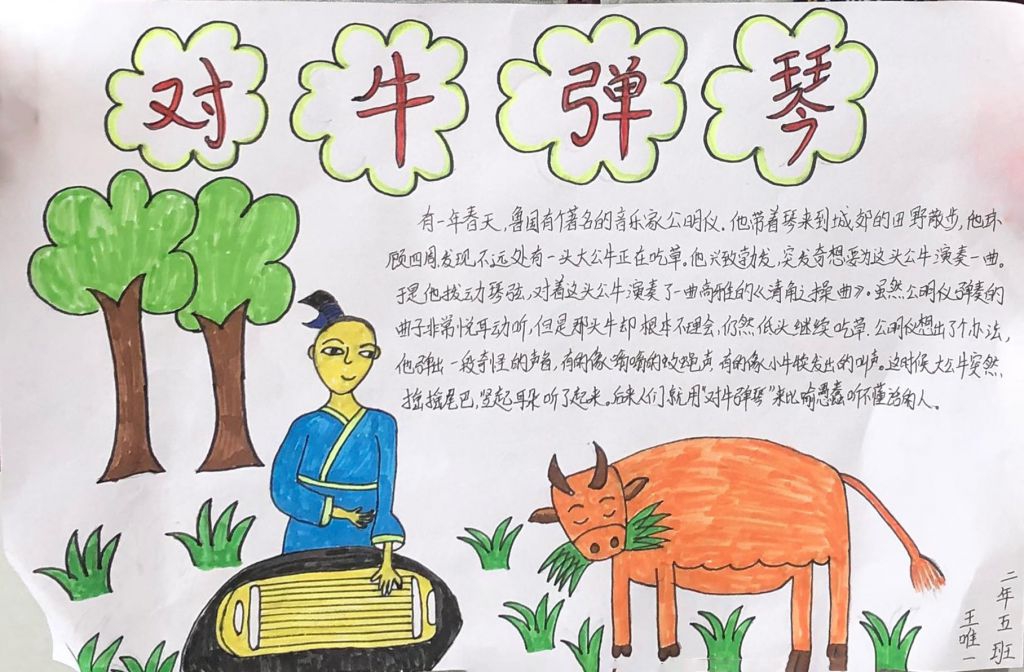 对牛弹琴
有一年春天,鲁国有个著名的音乐家公明仪.他带着琴来到城郊的田野散步,他环
顾四周发现,不远处有一头大公牛正在吃草。他兴致勃发,突发奇想要为这头公牛演奏一曲。
于是他拨动琴弦,对着这头公牛演奏了一曲高雅的《清角之操曲》。虽然公明仪弹奏的
曲子非常悦耳动听,但是那头牛却根本不理会,仍然低头继续吃草.公明仪想出了个办法,
他弹出一段奇怪的声音,有的像嗡嗡的蚊蝇声,有的像小牛发出的叫声。这时候大公牛突然
摇摇尾巴,竖起耳朵听了起来。后来人们就用"对牛弹琴"来比喻愚蠢听不懂话的人。
二年五班
王唯一